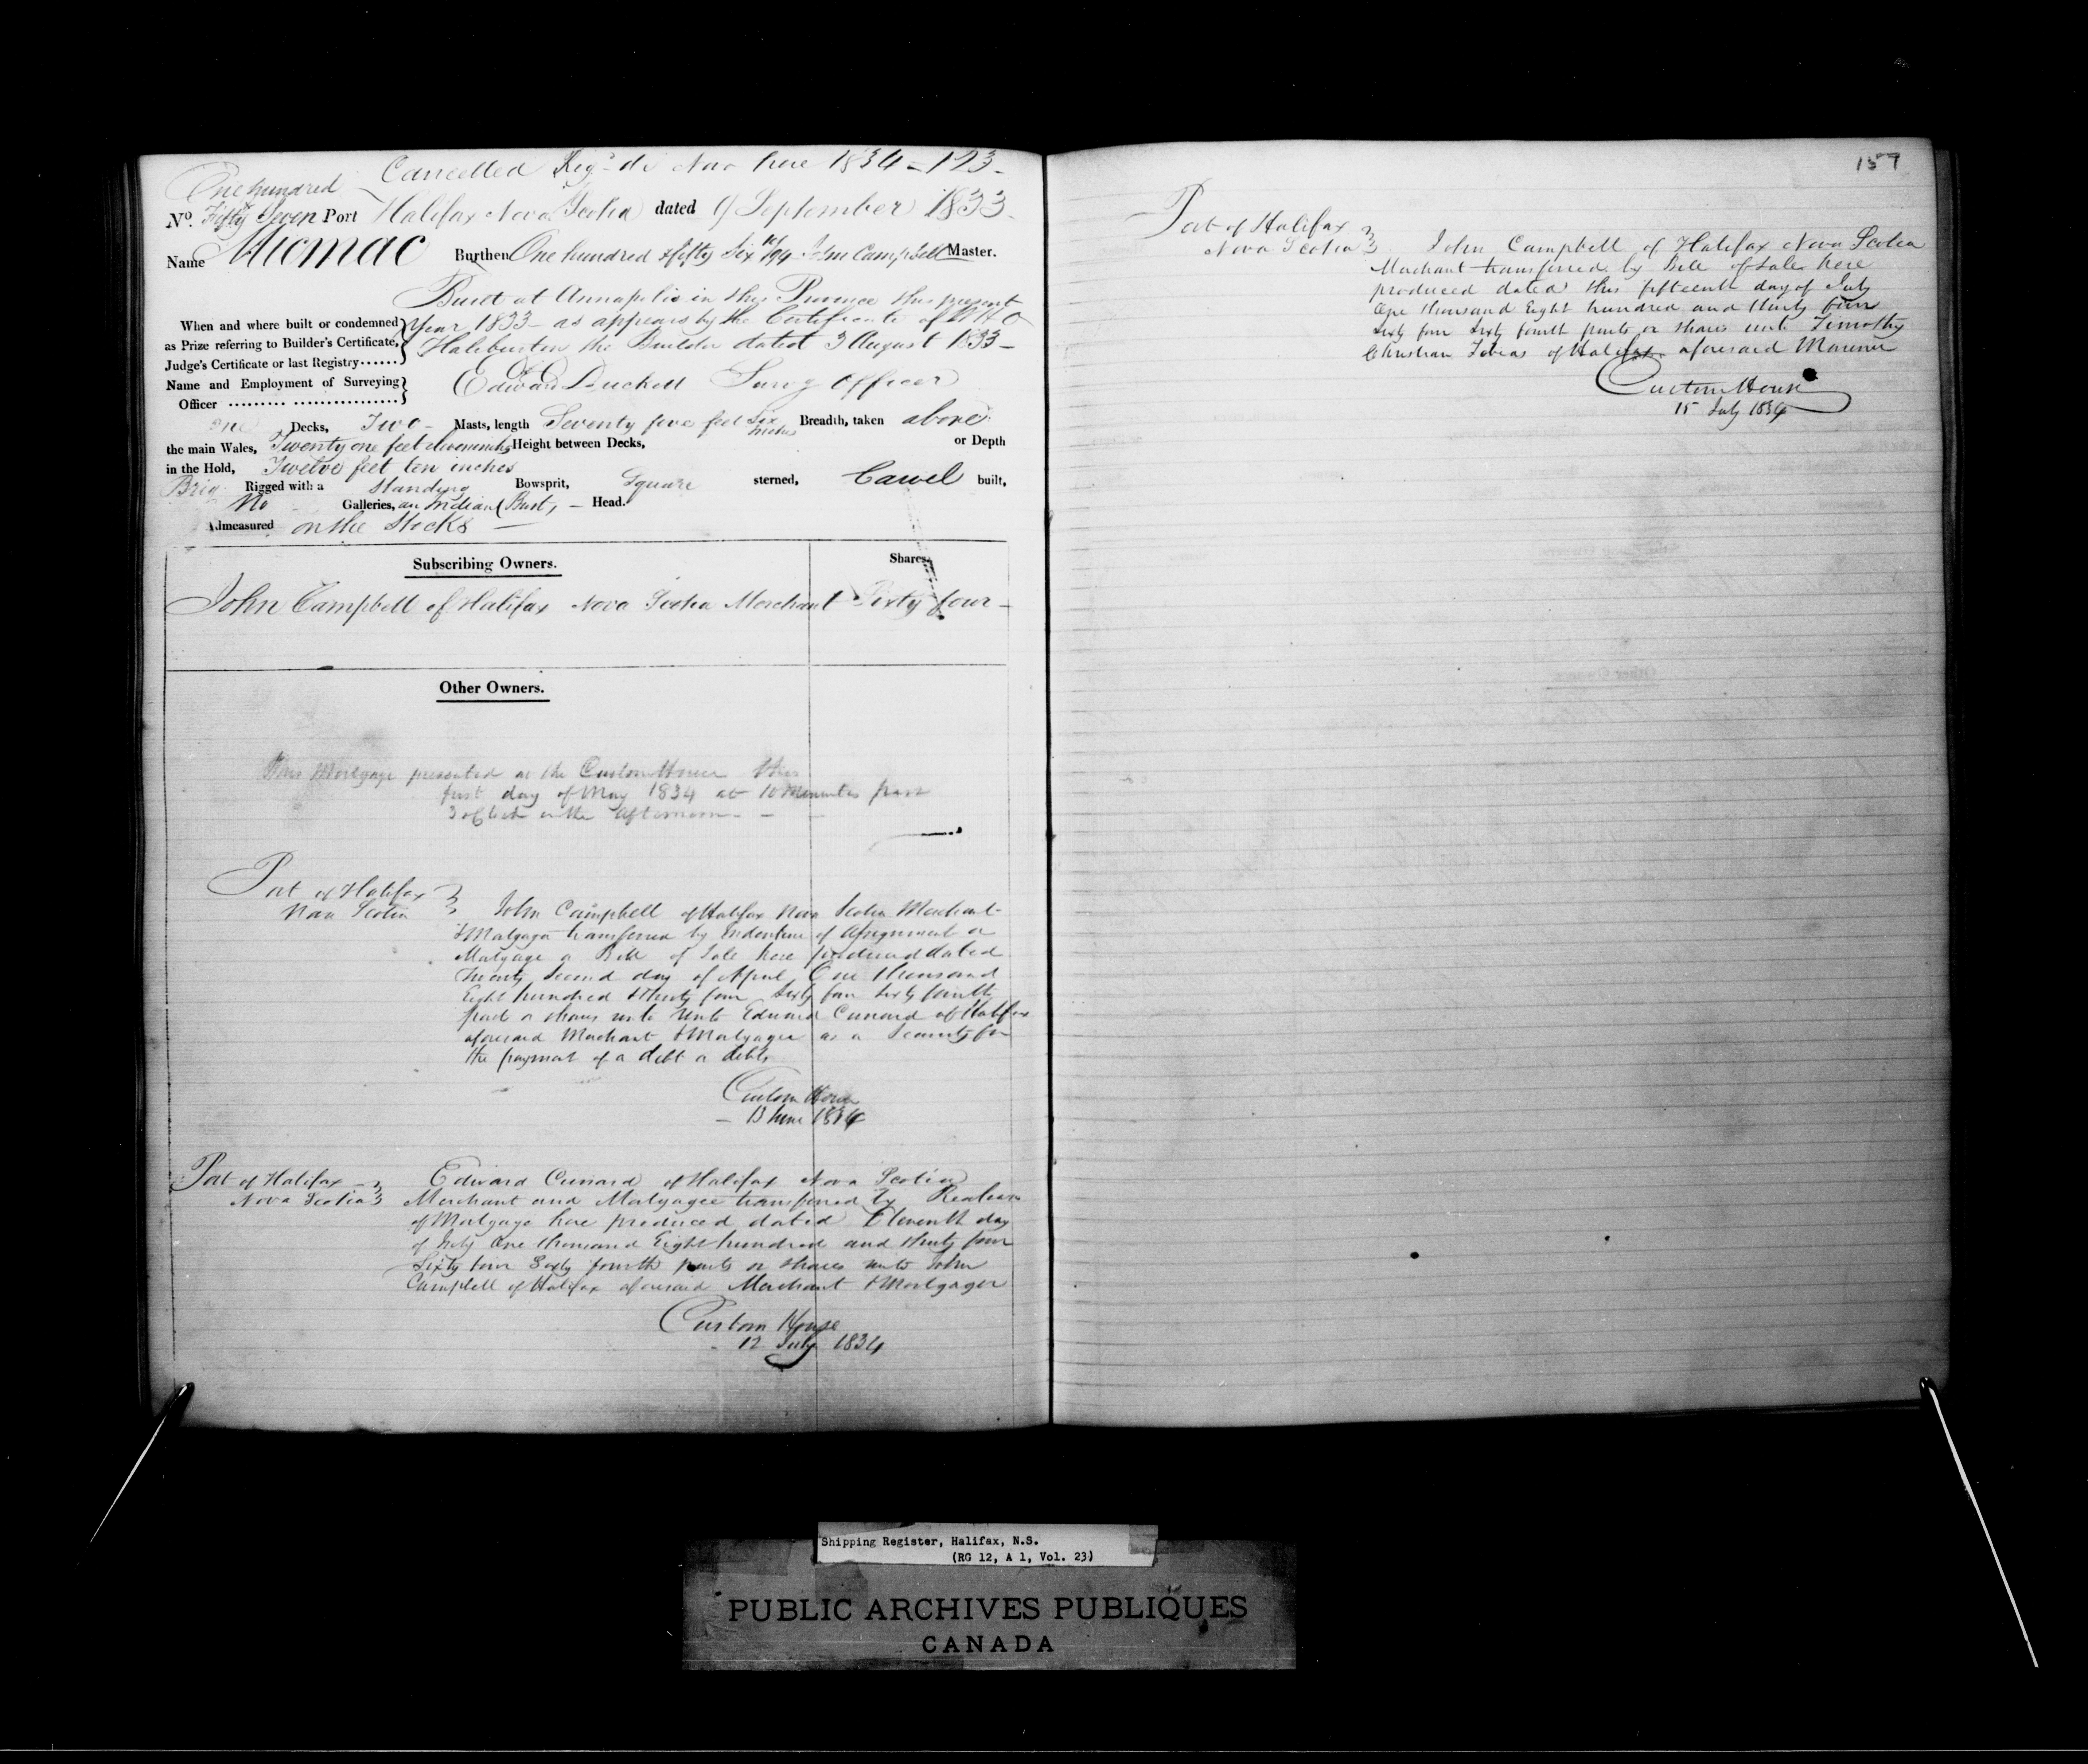 Cancelled Reg'd de Novo here 1834 - 123 -
One hundred
No. Fifty Seven Port Halifax Nova Scotia dated 9 September 1833
Name Micmac Burthen One hundred & fifty Six /94 Jn Campbell Master.
Built at Annapolis in this Province this present
When and where built or condemned Year 1833 - as appears by the Certificate of
as Prize referring to Builder's Certificate, Haliburton the Builder dated 3 August 1833 -
Judge's Certificate or last Registry......
Name and Employment of Surveying Edward Duckett Survg Officer
Officer ......... ................
One Decks, Two - Masts, length Seventy five feet Six inches Breadth, taken above
the main Wales, Twenty one feet eleven inches Height between Decks, or Depth
in the Hold, Twelve feet ten inches
Brig Rigged with a Standing Bowsprit, Square sterned, Carvel built,
No Galleries, an Indian Bust, - Head.
Admeasured on the Stocks -
Subscribing Owners. Shares.
John Campbell of Halifax Nova Scotia Merchant Sixty four -
Other Owners.
This Mortgage presented at the Custom House this
first day of May 1834 at 10 Minutes past
3 oClock in the afternoon - -
Port of Halifax
Nova Scotia
John Campbell of Halifax Nova Scotia Merchant
& Mortgagor transferred by Indenture of Assignment or
Mortgage or Bill of Sale here produced dated
Twenty Second day of April One thousand
Eight hundred & thirty four Sixty four Sixty fourth
parts or shares unto unto Edward Cunard of Halifax
aforesaid Merchant & Mortgagee as a Security for
the payment of a debt or debts
Custom House
- 13 June 1834
Port of Halifax -
Nova Scotia
Edward Cunard of Halifax Nova Scotia
Merchant and Mortgagee transferred by Release
of Mortgage here produced dated Eleventh day
of July One thousand Eight hundred and thirty four
Sixty four Sixty fourth parts or shares unto John
Campbell of Halifax aforesaid Merchant & Mortgagor
Custom House
- 12 July 1834
157
Port of Halifax
Nova Scotia
John Campbell of Halifax Nova Scotia
Merchant transferred by Bill of Sale here
produced dated this fifteenth day of July
One thousand Eight hundred and thirty four
Sixty four Sixty fourth parts or shares unto Timothy
Christian Tobias of Halifax aforesaid Mariner
Custom House
15 July 1834
Shipping Register, Halifax, N.S.
(RG 12, A 1, Vol. 23)
PUBLIC ARCHIVES PUBLIQUES
CANADA